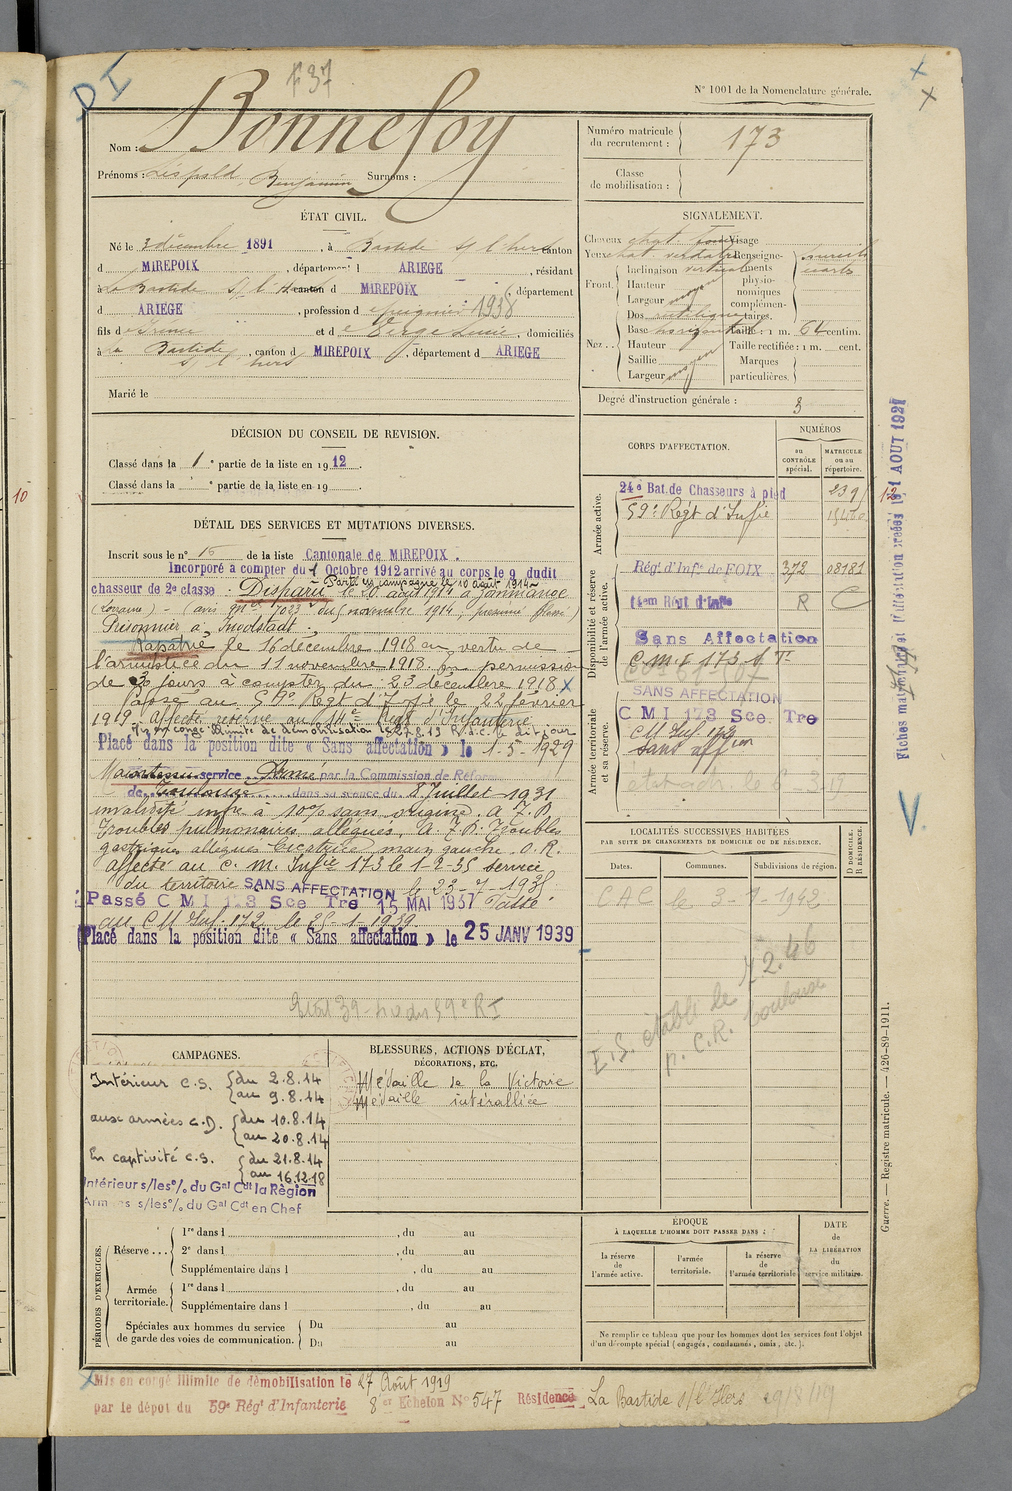 DI
F 37
N° 1001 de la Nomenclature générale.
Nom : Bonnefoy
Prénoms : Léopold Benjamin Surnoms :
ÉTAT CIVIL.
Né le 3 décembre 1891, à Bastide s/ l'hers canton
d MIREPOIX, département d ARIEGE, résidant
à La Bastide s/ l'Hers canton d MIREPOIX, département
d ARIEGE, profession d 1938
fils d et d domiciliés
à la Bastide s/ l'hers, canton d MIREPOIX, département d ARIEGE
Marié le
DÉCISION DU CONSEIL DE REVISION.
Classé dans la 1e partie de la liste en 1912.
Classé dans la e partie de la liste en 19
DÉTAIL DES SERVICES ET MUTATIONS DIVERSES.
Inscrit sous le n° 15 de la liste Cantonale de MIREPOIX.
Incorporé à compter du 1 Octobre 1912 arrivé au corps le 9 dudit
chasseur de 2e classe. Parti en campagne le 10 août 1914
Disparu le 20 août 1914 à
(Lorraine) - (avis 7023 du 5 novembre 1914, présumé blessé)
Prisonnier à Ingolstadt.
Rapatrié le 16 décembre 1918 en vertu de
l'armistice du 11 novembre 1918. En permission
de 30 jours à compter du 23 décembre 1918. X
Passé au 59e Régt d'Infie le 22 février
1919. Affecté réserve au 14e Régt d'Infanterie
Mis en congé illimité de démobilisation le 27.8.19
Placé dans la position dite « Sans affectation » le 1-5-1929
Maintenu service Armé par la Commission de Réforme
de Toulouse dans sa séance du 8 Juillet 1931
invalidité infre à 10% sans origine. A. F. P.
Troubles pulmonaires allégués. A. F. P. Troubles
gastriques allégués. Cicatrice main gauche. O. R.
affecté au C. M. Infie 173 le 1-2-35 service
du territoire SANS AFFECTATION le 23-7-1935
Passé C M I 173 Sce Tre 15 MAI 1937 Passé
au CM Inf. 172 le 25-1-1939.
Placé dans la position dite « Sans affectation » le 25 JANV 1939
CAMPAGNES.
Intérieur C.S. { du 2.8.14
au 9.8.14
aux armées C.D. { du 10.8.14
au 20.8.14
En captivité C.S. { du 21.8.14
au 16.12.18
Intérieur s/les % du Gal Cdt la Région
Armées s/les % du Gal Cdt en Chef
BLESSURES, ACTIONS D'ÉCLAT,
DÉCORATIONS, ETC.
Médaille de la Victoire
Médaille interalliée
PÉRIODES D'EXERCICES.
Réserve ...
1re dans l , du au
2e dans l , du au
Supplémentaire dans l , du au
Armée territoriale.
1re dans l , du au
Supplémentaire dans l , du au
Spéciales aux hommes du service
de garde des voies de communication.
Du au
Du au
Mis en congé illimité de démobilisation le 27 Août 1919
par le dépôt du 59e Régt d'Infanterie 8er Echelon N° 547 Résidence La Bastide s/l'Hers 29/8/19
Numéro matricule
du recrutement : 173
Classe
de mobilisation :
SIGNALEMENT.
Cheveux Visage
Yeux Renseignements
physionomiques
complémentaires.
Front.
Inclinaison verticale
Hauteur
Largeur moyen
Nez ..
Dos rectiligne
Base horizontale
Hauteur
Saillie
Largeur moyen
Taille : 1 m. 64 centim.
Taille rectifiée : 1 m. cent.
Marques
particulières.
Degré d'instruction générale : 3
CORPS D'AFFECTATION.
NUMÉROS
au
CONTRÔLE
spécial.
MATRICULE
ou au
répertoire.
Armée active.
24e Bat. de Chasseurs à pied
59e Régt d'Infie
Disponibilité et réserve
de l'armée active.
Rég. d'Infie de FOIX 372 08181
14em Régt d'Infie R C
Sans Affectation
Armée territoriale
et sa réserve.
SANS AFFECTATION
C M I 173 Sce. Tre
CM Inf. 172
Sans affion
Fiches matricules 1 AOUT 1921
LOCALITÉS SUCCESSIVES HABITÉES
PAR SUITE DE CHANGEMENTS DE DOMICILE OU DE RÉSIDENCE.
Dates.
Communes.
Subdivisions de région.
D DOMICILE.
R RÉSIDENCE.
CAC le 1942
E.S. établi le 7.2.46
p. C.R. Toulouse
ÉPOQUE
À LAQUELLE L'HOMME DOIT PASSER DANS :
la réserve
de
l'armée active.
l'armée
territoriale.
la réserve
de
l'armée territoriale
DATE
de
LA LIBÉRATION
du
service militaire.
Ne remplir ce tableau que pour les hommes dont les services font l'objet
d'un décompte spécial (engagés, condamnés, omis, etc.).
Guerre. — Registre matricule. — 426-89-1911.